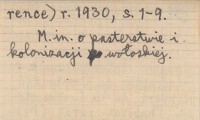 rence) r. 1930, s. 1-9.
M. in. o pasterstwie i
kolonizacji wołoskiej.